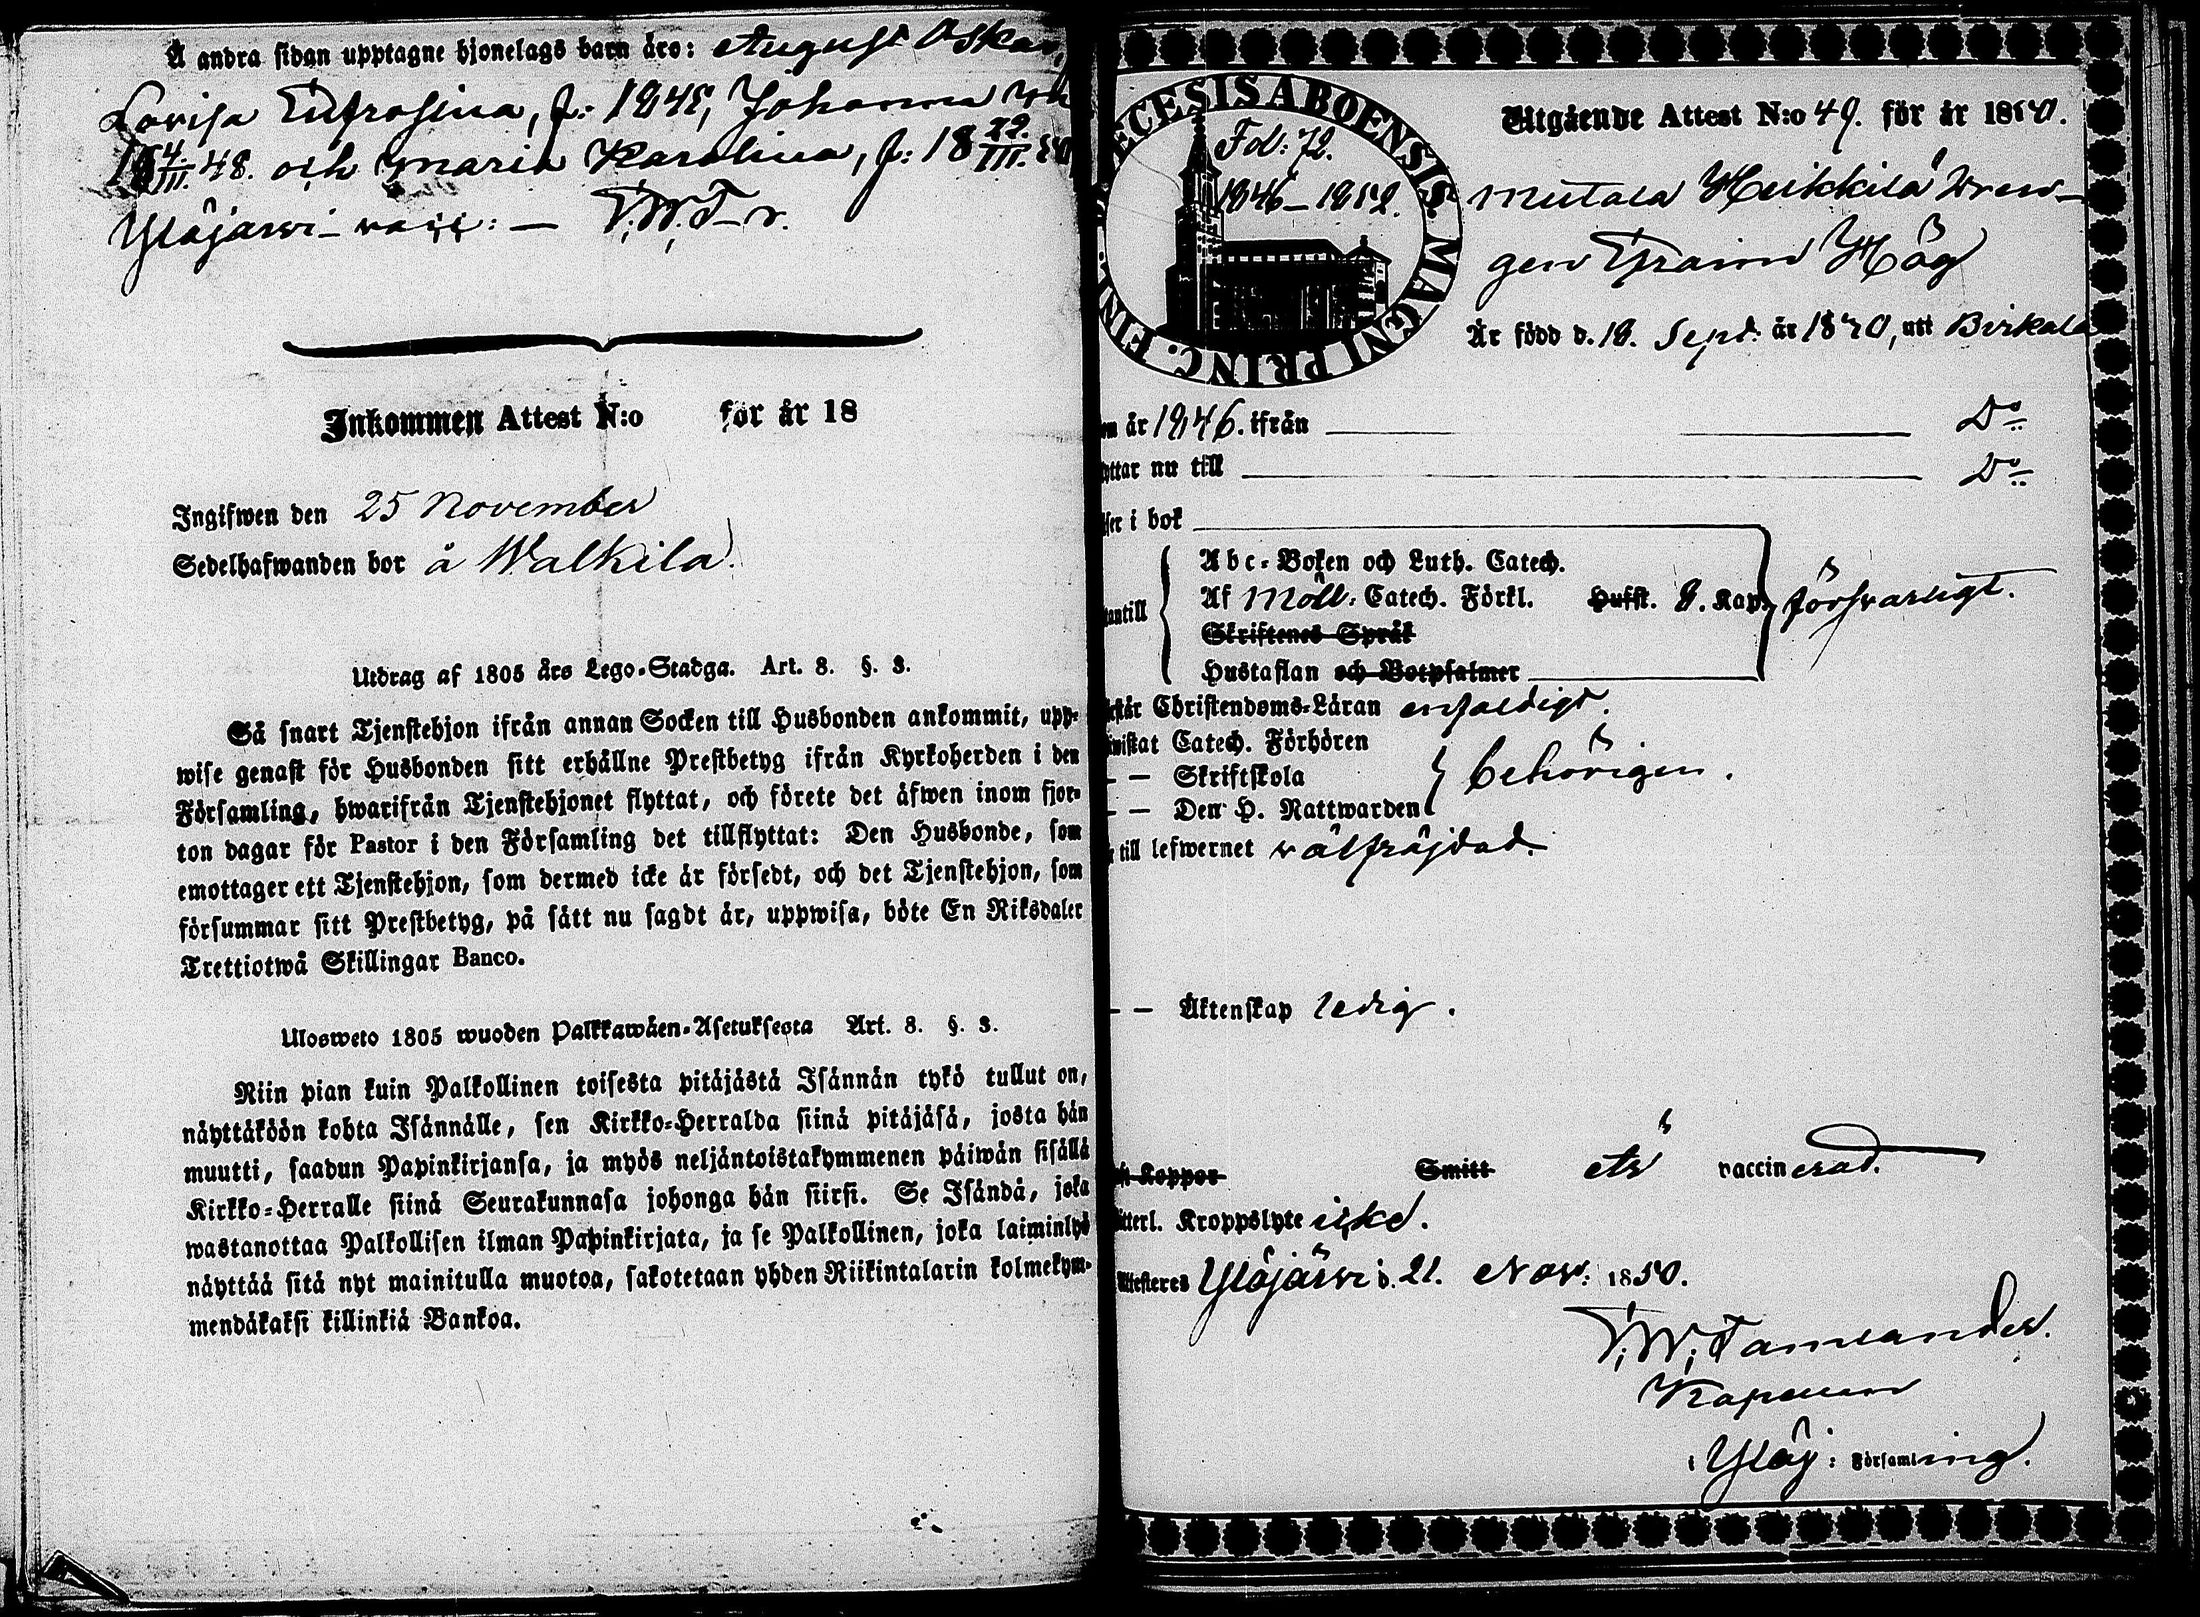 Å andra sidan upptagne hjonelags barn äro: August Oskar,
Lovisa Eufrosina, f: 1845, Johanna
18 4/III. 48. och Maria Karolina, f: 18 22./III. 50
Ylöjärvi — T. W. T—r.
Inkommen Attest N:o för år 18
Ingifwen den 25 November
Sedelhafwanden bor å Walkila.
Utdrag af 1805 års Lego-Stadga. Art. 8. §. 3.
Så snart Tjenstehjon ifrån annan Socken till Husbonden ankommit, upp-
wise genast för Husbonden sitt erhållne Prestbetyg ifrån Kyrkoherden i den
Församling, hwarifrån Tjenstehjonet flyttat, och förete det äfwen inom fjor-
ton dagar för Pastor i den Församling det tillflyttat: Den Husbonde, som
emottager ett Tjenstehjon, som dermed icke är försedt, och det Tjenstehjon, som
försummar sitt Prestbetyg, på sätt nu sagdt är, uppwisa, böte En Riksdaler
Trettiotwå Skillingar Banco.
Ulosweto 1805 wuoden Palkkawäen-Asetuksesta Art. 8. §. 3.
Niin pian kuin Palkollinen toisesta pitäjästä Isännän tykö tullut on,
näyttäköön kohta Isännälle, sen Kirkko-Herralda siinä pitäjäsä, josta hän
muutti, saadun Papinkirjansa, ja myös neljäntoistakymmenen päiwän sisällä
Kirkko-Herralle siinä Seurakunnasa johonga hän siirsi. Se Isändä, joka
wastanottaa Palkollisen ilman Papinkirjata, ja se Palkollinen, joka laiminlyö
näyttää sitä nyt mainitulla muotoa, sakotetaan yhden Riikintalarin kolmekym-
mendäkaksi killinkiä Bankoa.
DIOECESIS ABOENSIS. MAGNI PRINC. FINL.
Fol: 72.
1846–1852.
Utgående Attest N:o 49. för år 1850.
Mutala Heikkilä Dren-
gen Frans Hög
Är född d. 18. Sept. år 1820, utt Birkala
en år 1846. ifrån D:o
yttar nu till D:o
ser i bok
Abc-Boken och Luth. Catech.
Af Möll: Catech. Förkl. Hufst. 8. Kap.
försvarligt.
antill
Skriftenes Språk
Hustaflan och Botpsalmer
står Christendoms-Läran enfaldigt.
wistat Catech. Förhören
— — Skriftskola
behörigen.
— — Den H. Nattwarden
till lefwernet välfräjdad.
— — Äktenskap ledig.
Koppor Smitt är vaccinerad.
tterl. Kroppslyte icke.
Attesteres Ylöjärvi d. 21. Nov: 1850.
T. W. Tamlander.
Kapellan
i Ylöj: Församling.